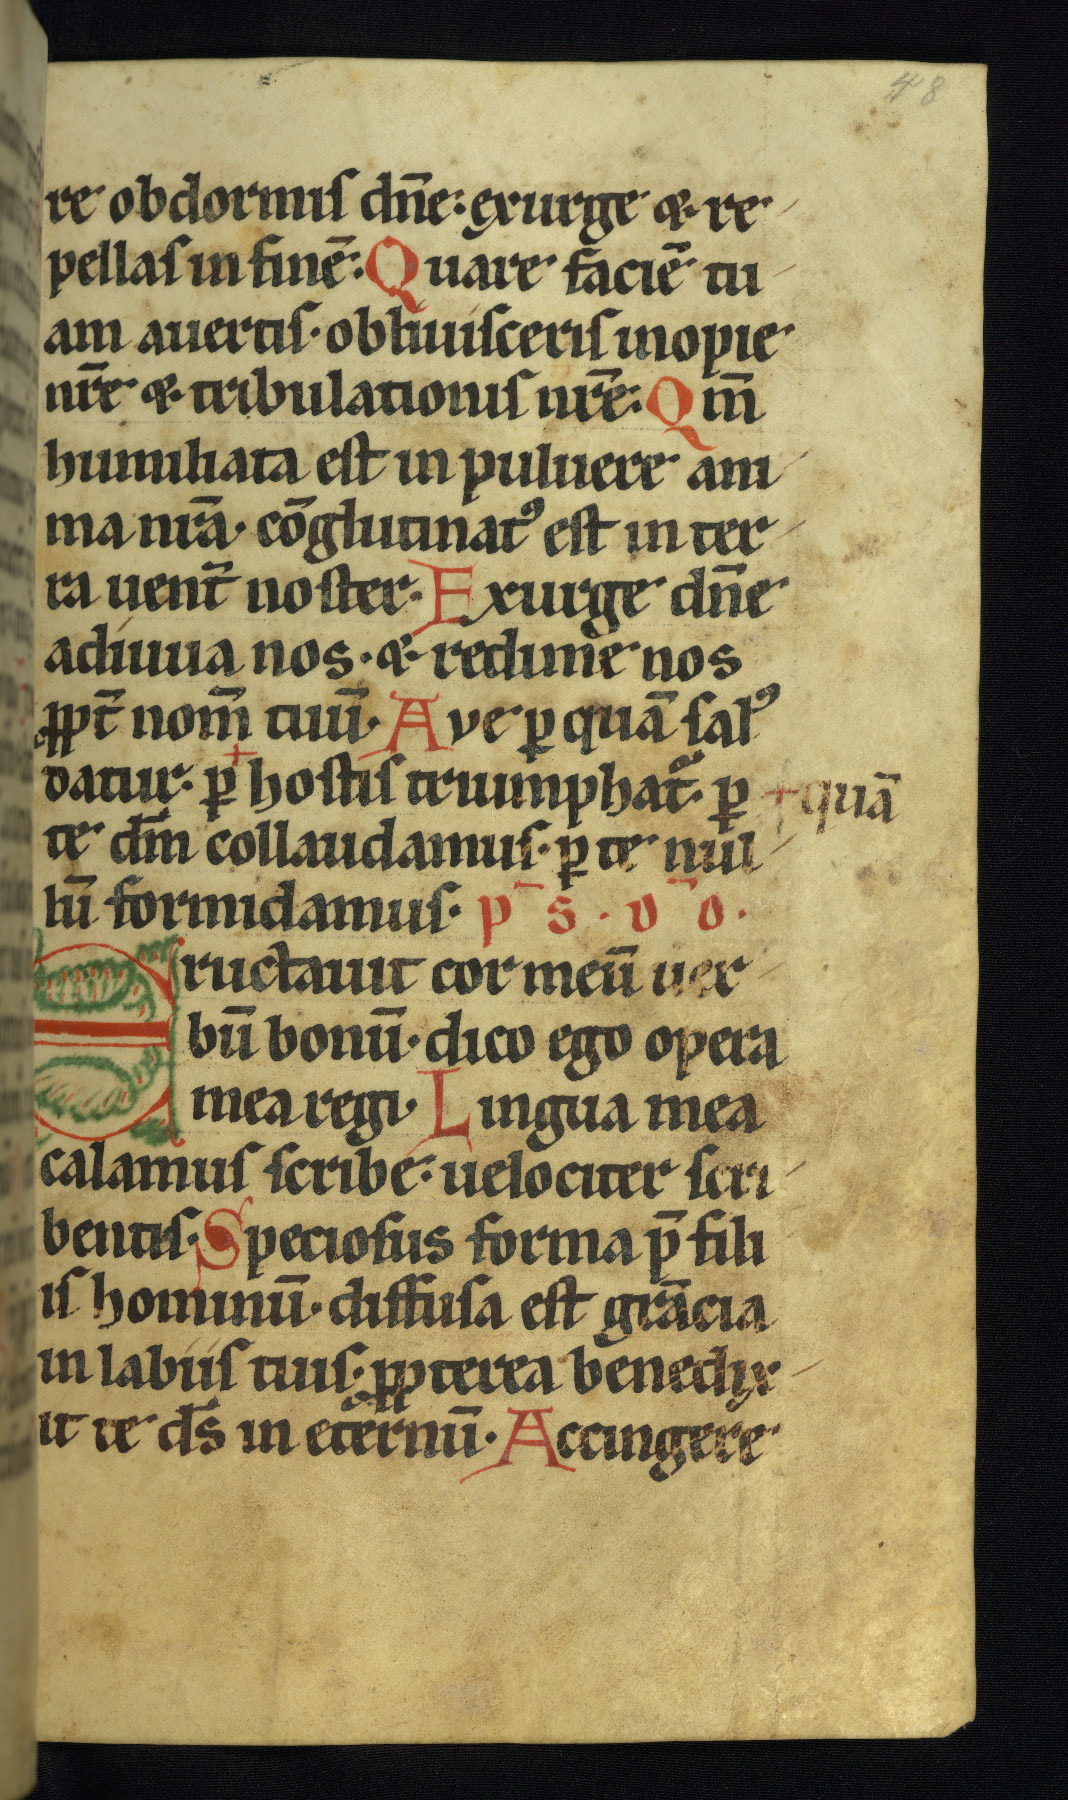 48
re obdormis dn̄e: exurge & re
pellas in finē: Quare faciē tu
am auertis· obliuisceris inopie
nr̄e & tribulationis nr̄e: Qm̄
humiliata est in puluere ani
ma nr̄a· cōglutinatꝰ est in ter
ra uent̄ noster· Exurge dn̄e
adiuua nos· & redime nos
ꝓpt̄ nom̄ tuū· Ave ꝑ quā salꝰ
datur· ꝑ + hostis triumphat᷑· ꝑ + quā
te dm̄ collaudamus· ꝑ te nul
lū formidamus· p̄ s · v̄ o ·
Eructauit cor meū uer
bū bonū· dico ego opera
mea regi· Lingua mea
calamus scribe: uelociter scri
bentis· Speciosus forma p̄ fili
is hominū· diffusa est grācia
in labiis tuis· ꝓpterea benedix
it te ds̄ in eternū· Accingere